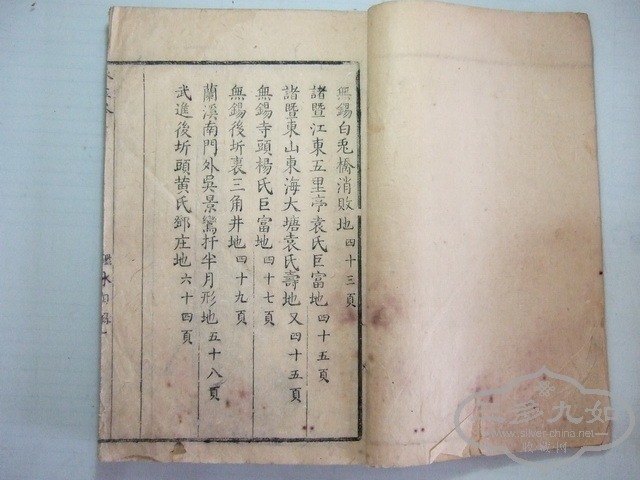 無錫白兎橋消敗地四十三頁
諸暨江東五里亭袁氏巨富地四十五頁
諸暨東山東海大塘袁氏壽地又四十五頁
無錫寺頭楊氏巨富地四十七頁
無錫後圻裏三角井地四十九頁
蘭溪南門外吳景鸞扦半月形地五十八頁
武進後圻頭黄氏鄧庄地六十四頁
多九如
www.silver.china.net
收藏网